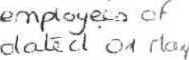 employees of
dated on may